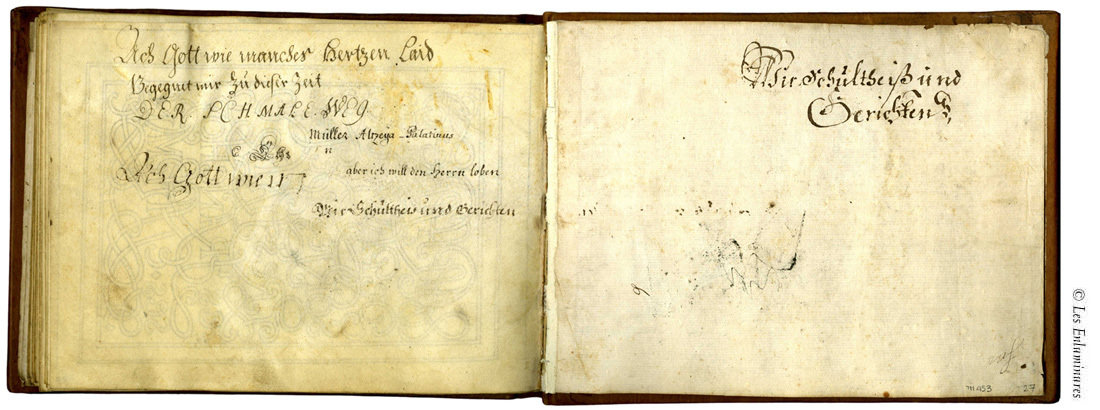 Ach Gott wie mancher Hertzen Laid
Begegnet mir Zu dieser Zeit
DER. SCHMALE. WEG.
Müller Altzeya-Palatinus
n
Ach Gott wie
aber ich will den Herrn loben
Wir Schültheis und Gerichten
Wir Schültheiß und
Gerichten
m 453
27
© Les Enluminures